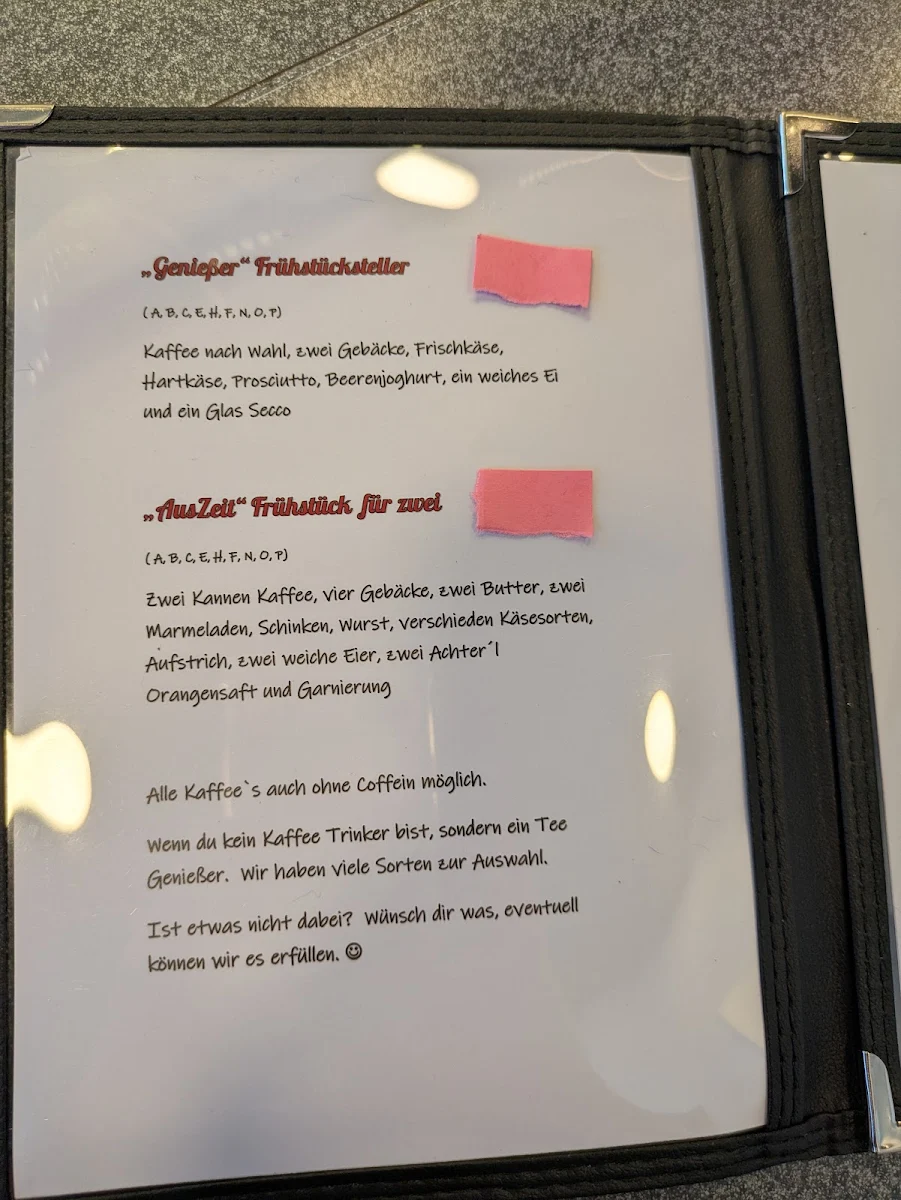 „Genießer“ Frühstücksteller
(A, B, C, E, H, F, N, O, P)
Kaffee nach Wahl, zwei Gebäcke, Frischkäse,
Hartkäse, Prosciutto, Beerenjoghurt, ein weiches Ei
und ein Glas Secco
„AusZeit“ Frühstück für zwei
(A, B, C, E, H, F, N, O, P)
Zwei Kannen Kaffee, vier Gebäcke, zwei Butter, zwei
Marmeladen, Schinken, Wurst, verschieden Käsesorten,
Aufstrich, zwei weiche Eier, zwei Achter´l
Orangensaft und Garnierung
Alle Kaffee`s auch ohne Coffein möglich.
Wenn du kein Kaffee Trinker bist, sondern ein Tee
Genießer. Wir haben viele Sorten zur Auswahl.
Ist etwas nicht dabei? Wünsch dir was, eventuell
können wir es erfüllen. ☺